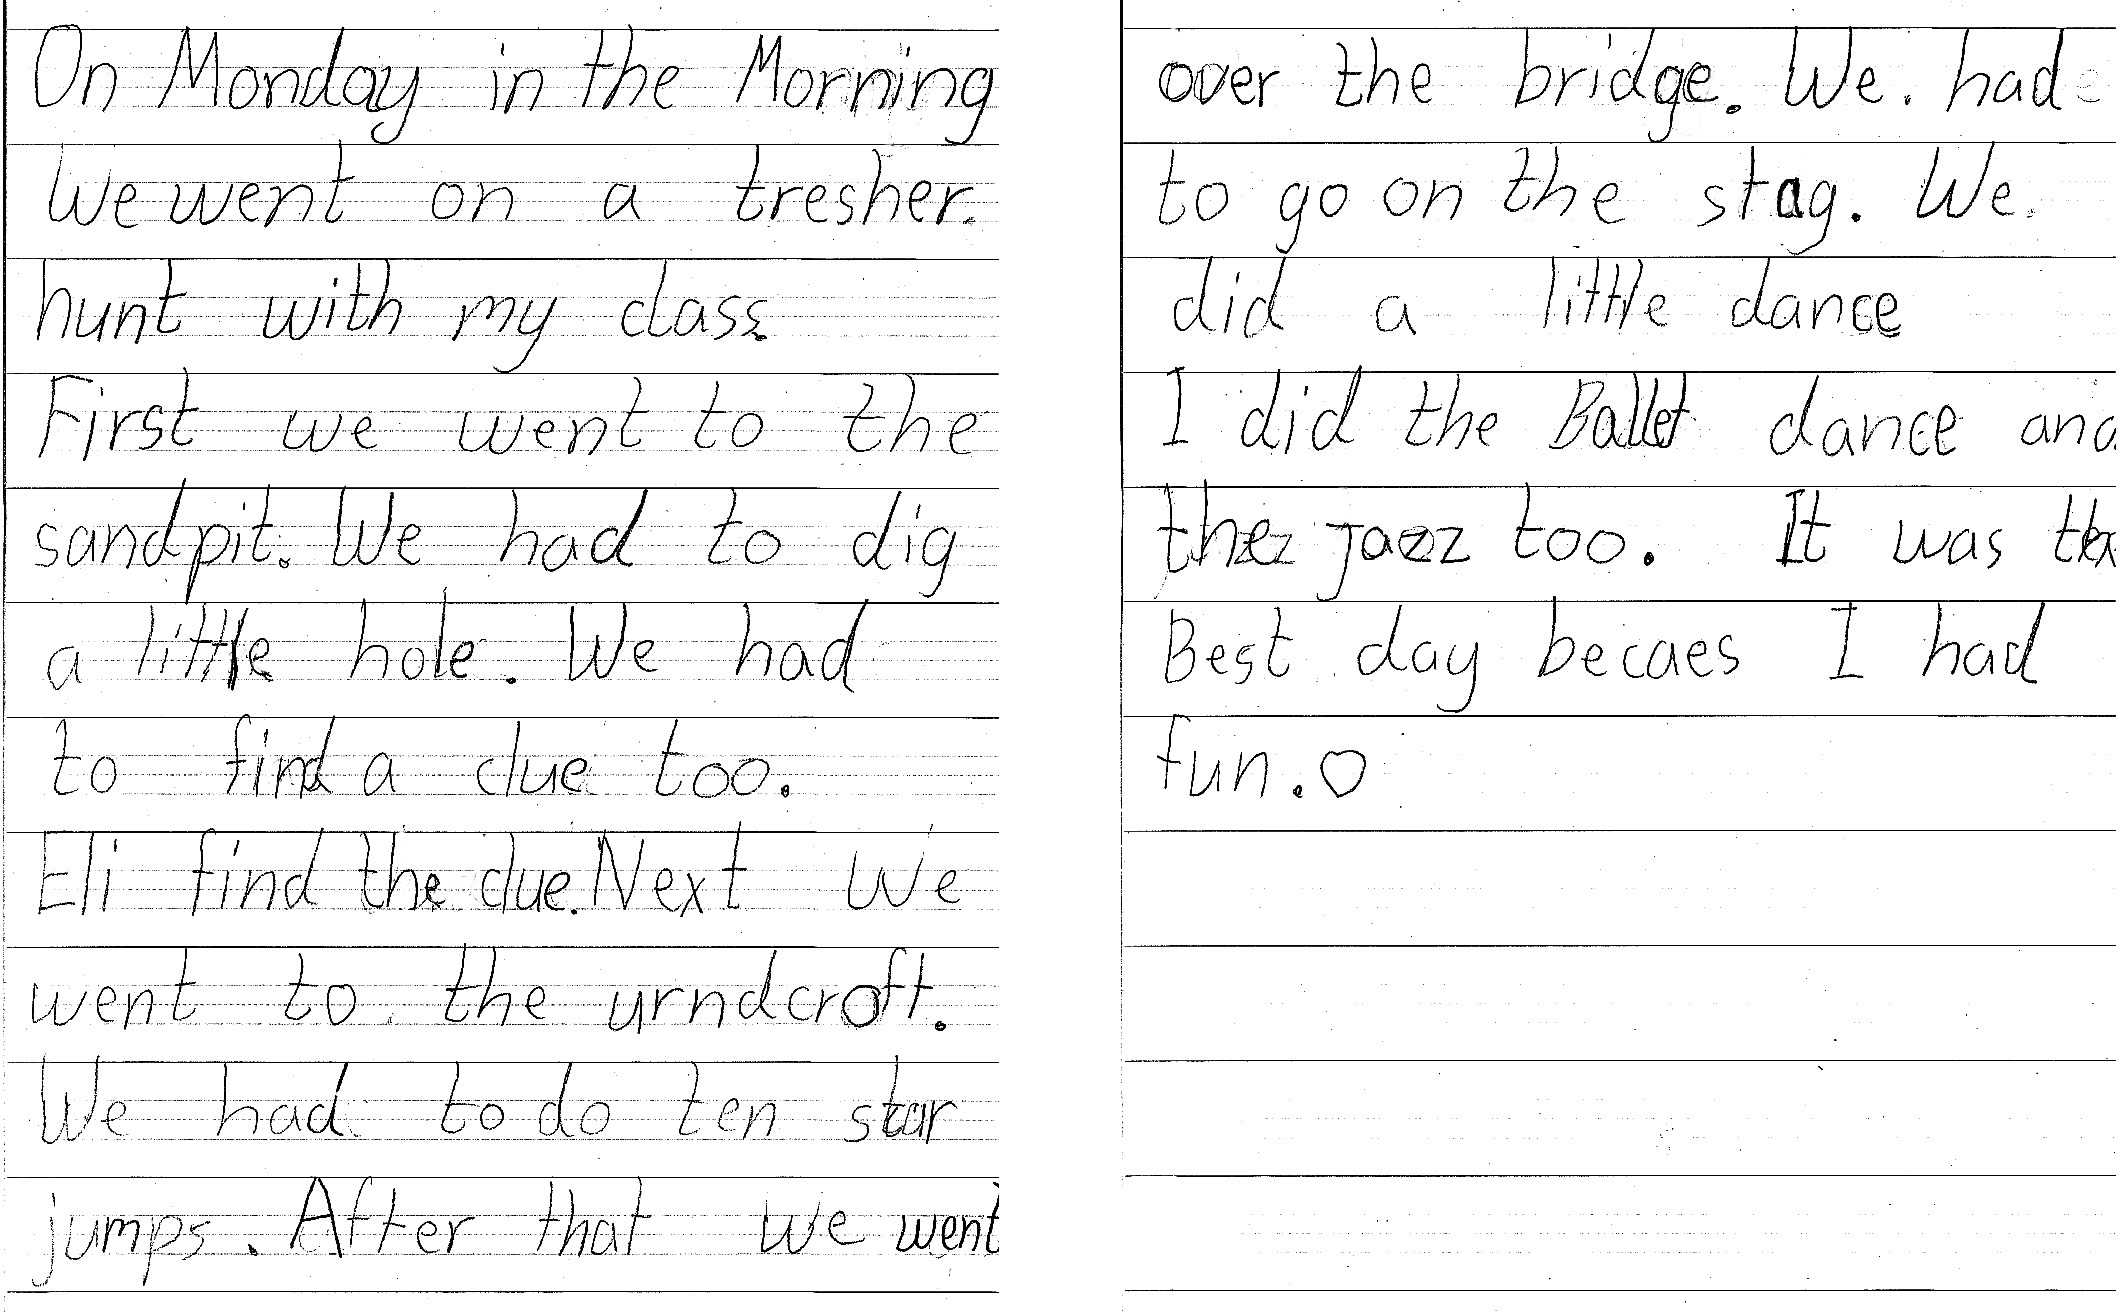 On Monday in the Morning
We went on a tresher.
hunt with my class.
First we went to the
sandpit. We had to dig
a little hole. We had
to find a clue too.
Eli find the clue. Next We
went to the urndcroft.
We had to do ten star
jumps. After that We went
over the bridge. We. had
to go on the stag. We.
did a little dance
I did the Ballet dance and
jazz too. It was the
Best day becaes I had
fun. ♡